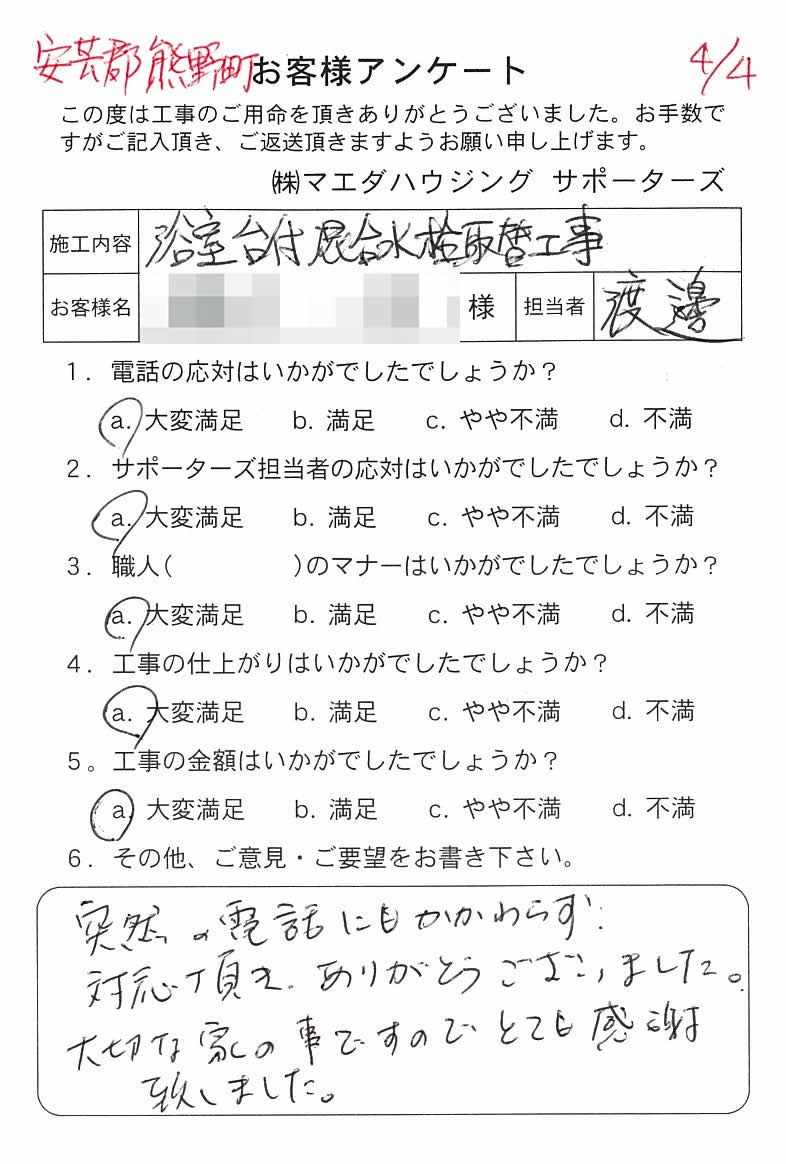 安芸郡熊野町 お客様アンケート 4/4
この度は工事のご用命を頂きありがとうございました。お手数で
すがご記入頂き、ご返送頂きますようお願い申し上げます。
㈱マエダハウジング サポーターズ
施工内容 浴室台付混合水栓取替工事
お客様名 様 担当者 渡邊
1. 電話の応対はいかがでしたでしょうか？
a. 大変満足 b. 満足 c. やや不満 d. 不満
2. サポーターズ担当者の応対はいかがでしたでしょうか？
a. 大変満足 b. 満足 c. やや不満 d. 不満
3. 職人( )のマナーはいかがでしたでしょうか？
a. 大変満足 b. 満足 c. やや不満 d. 不満
4. 工事の仕上がりはいかがでしたでしょうか？
a. 大変満足 b. 満足 c. やや不満 d. 不満
5。工事の金額はいかがでしたでしょうか？
a. 大変満足 b. 満足 c. やや不満 d. 不満
6. その他、ご意見・ご要望をお書き下さい。
突然の電話にもかかわらず、
対応頂き、ありがとうございました。
大切な家の事ですのでとても感謝
致しました。